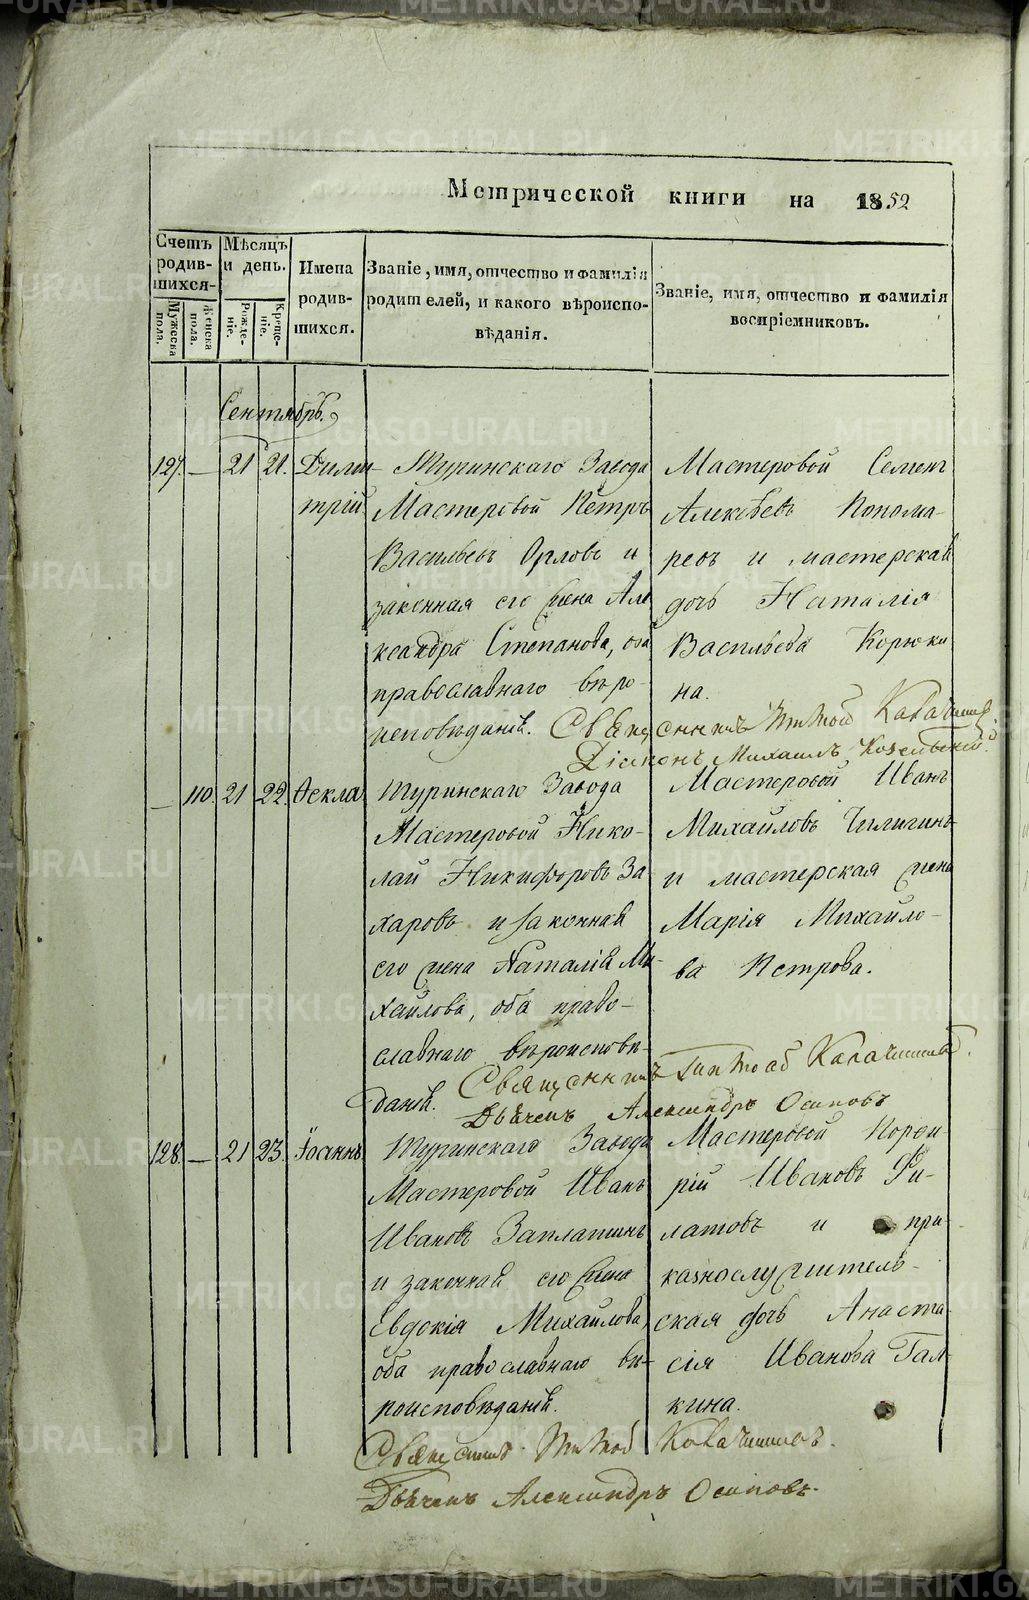 Метрической книги на 1852
Счетъ родившихся.
Мужеска пола.
Женска пола.
Мѣсяцъ и день.
Рожденіе.
Крещеніе.
Имена родившихся.
Званіе, имя, отчество и фамилія
родителей, и какого вѣроиспо-
вѣданія.
Званіе, имя, отчество и фамилія
воспріемниковъ.
Сентябрь.
127. — 21 21. Дими-
трій
Туринскаго Завода
Мастеровой Петръ
Васильевъ Орловъ и
законная его жена Але
ксандра Степанова, оба
православнаго вѣро-
исповѣданія.
Мастеровой Семенъ
Алексѣевъ Понома-
ревъ и мастерская
дочь Наталія
Васильева Корюки
на.
Священникъ Титовъ Калачниковъ
Діаконъ Михаилъ Козельскій.
— 110. 21 22. Ѳекла
Туринскаго Завода
Мастеровой Нико-
лай Никифоровъ За
харовъ и законная
его жена Наталія Ми-
хайлова, оба право-
славнаго вѣроисповѣ-
данія.
Мастеровой Иванъ
Михайловъ Чилигинъ
и мастерская жена
Марія Михайло-
ва Петрова.
Священникъ
Дьяченъ Александръ Осиповъ
128. — 21 23. Іоаннъ
Туринскаго Завода
Мастеровой Иванъ
Ивановъ Заплатинъ
и законная его жена
Евдокія Михайлова,
оба православнаго вѣ-
роисповѣданія.
Мастеровой Порфи-
рій Ивановъ Фи-
латовъ и при-
казнослужитель-
ская дочь Анаста-
сія Иванова Гал-
кина.
Священникъ
Дьяченъ Александръ Осиповъ.
METRIKI.GASO-URAL.RU